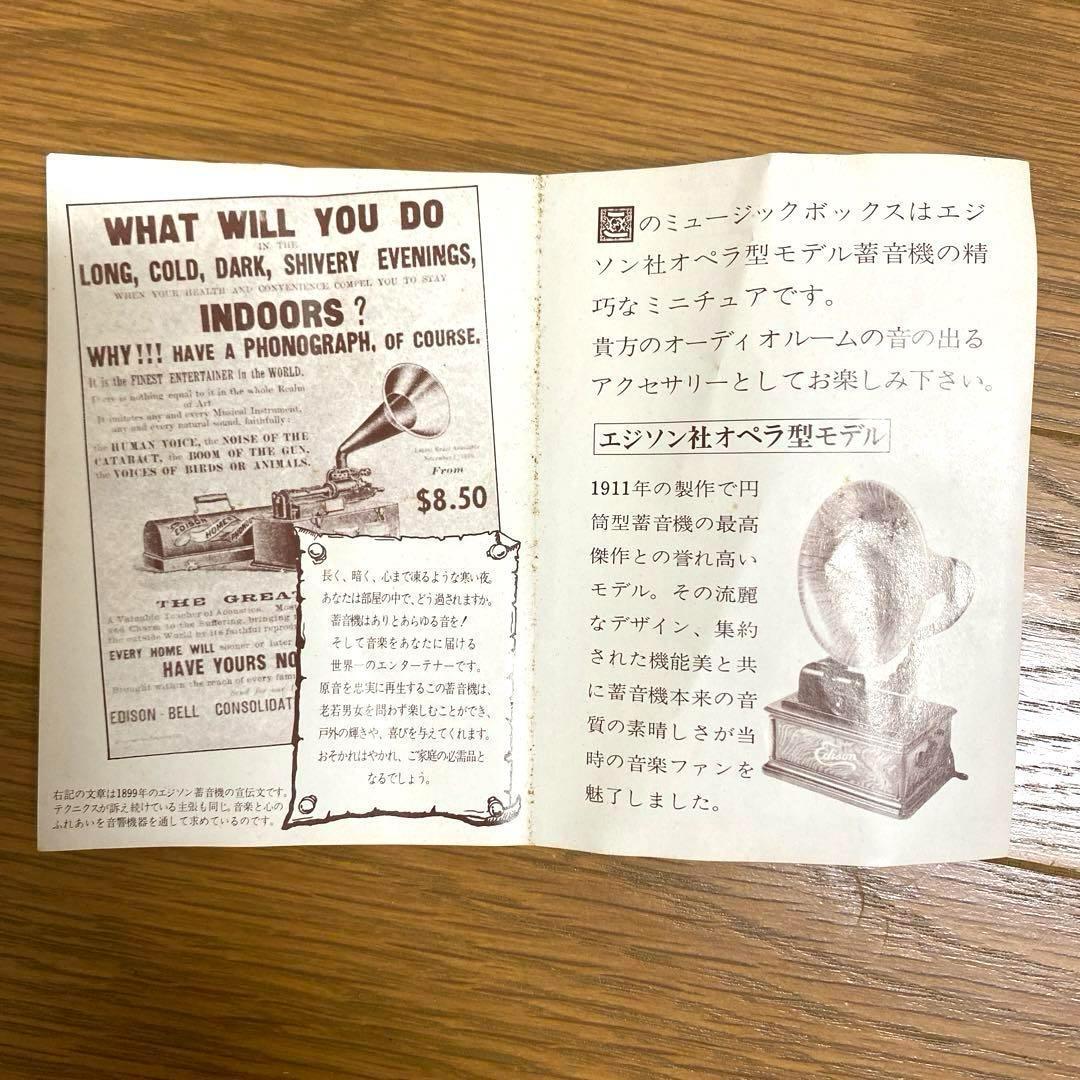 WHAT WILL YOU DO
IN THE
LONG, COLD, DARK, SHIVERY EVENINGS,
WHEN YOUR HEALTH AND CONVENIENCE COMPEL YOU TO STAY
INDOORS?
WHY!!! HAVE A PHONOGRAPH, OF COURSE.
It is the FINEST ENTERTAINER in the WORLD.
There is nothing equal to it in the whole Realm
of Art
It imitates any and every Musical Instrument,
any and every natural sound, faithfully:
the HUMAN VOICE, the NOISE OF THE
CATARACT, the BOOM OF THE GUN,
the VOICES OF BIRDS OR ANIMALS.
From
$8.50
EDISON
HOME
THE GREA
A Valuable Teacher of Acoustics. Most
to the Suffering, bringing
the outside World by its faithful reprod
EVERY HOME WILL sooner or later
HAVE YOURS NO
Brought within the reach of every fam
Send for our
EDISON-BELL CONSOLIDAT
長く、暗く、心まで凍るような寒い夜。
あなたは部屋の中で、どう過されますか。
蓄音機はありとあらゆる音を!
そして音楽をあなたに届ける
世界一のエンターテナーです。
原音を忠実に再生するこの蓄音機は、
老若男女を問わず楽しむことができ、
戸外の輝きや、喜びを与えてくれます。
おそかれはやかれ、ご家庭の必需品と
なるでしょう。
右記の文章は1899年のエジソン蓄音機の宣伝文です。
テクニクスが訴え続けている主張も同じ。音楽と心の
ふれあいを音響機器を通して求めているのです。
このミュージックボックスはエジ
ソン社オペラ型モデル蓄音機の精
巧なミニチュアです。
貴方のオーディオルームの音の出る
アクセサリーとしてお楽しみ下さい。
エジソン社オペラ型モデル
1911年の製作で円
筒型蓄音機の最高
傑作との誉れ高い
モデル。その流麗
なデザイン、集約
された機能美と共
に蓄音機本来の音
質の素晴しさが当
時の音楽ファンを
魅了しました。
Edison